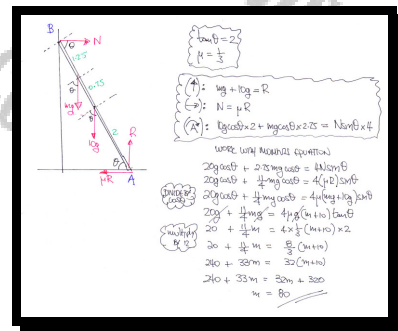 B
N
θ
1.25
θ
0.75
mg
θ
10g
2
R
θ
μR
A
tanθ = 2
μ = 1/3
(↑): mg + 10g = R
(→): N = μR
(A): 10gcosθ×2 + mgcosθ×2.75 = Nsinθ×4
WORK WITH MOMENTS EQUATION
20gcosθ + 2.75mgcosθ = 4Nsinθ
20gcosθ + 11/4 mgcosθ = 4(μR)sinθ
DIVIDE BY cosθ
20gcosθ + 11/4 mgcosθ = 4μ(mg+10g)sinθ
20g + 11/4 mg = 4μg(m+10)tanθ
multiply BY 12
20 + 11/4 m = 4×1/3(m+10)×2
20 + 11/4 m = 8/3(m+10)
240 + 33m = 32(m+10)
240 + 33m = 32m + 320
m = 80